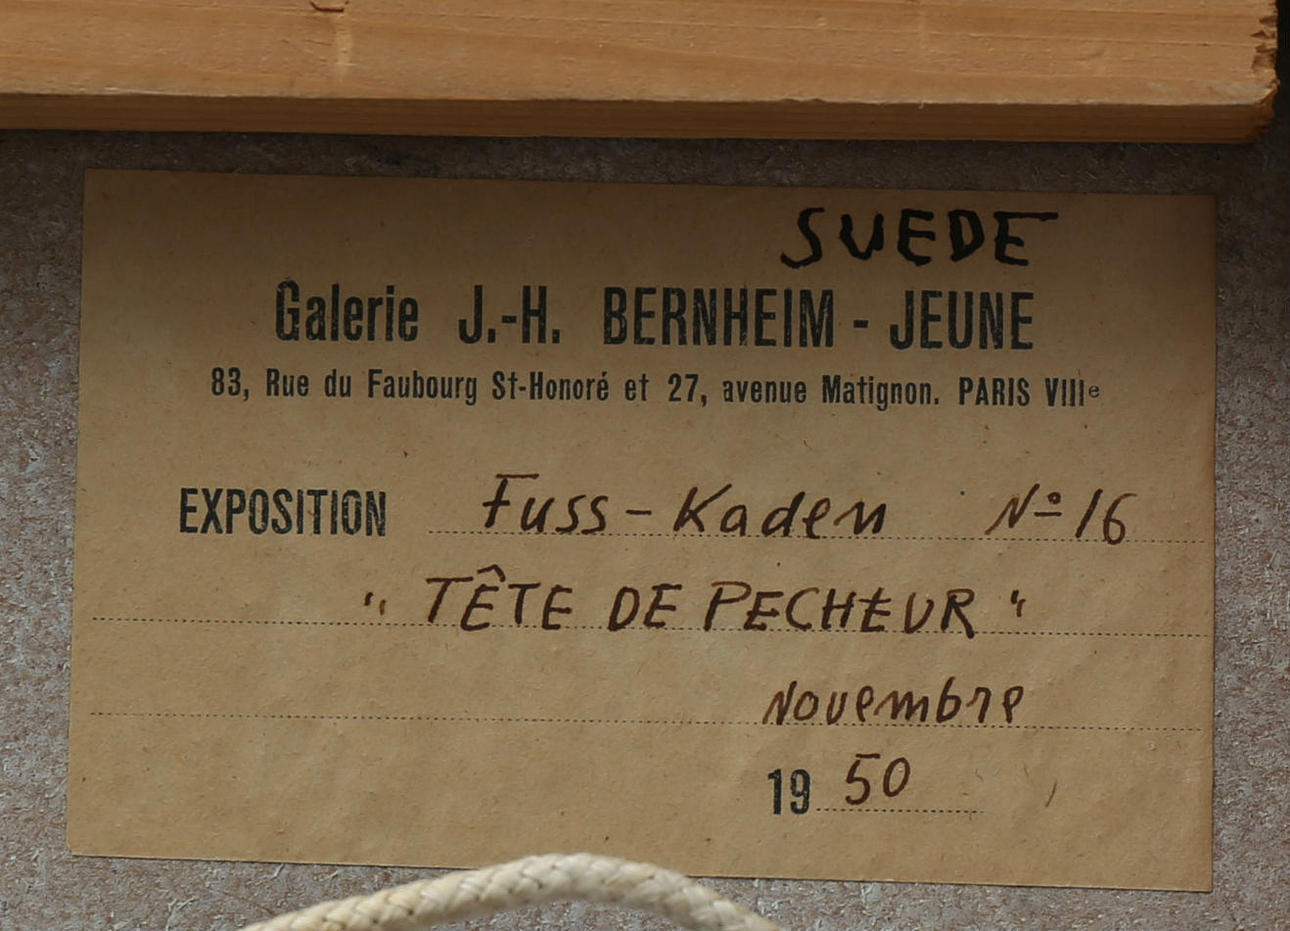 SUEDE
Galerie J.-H. BERNHEIM - JEUNE
83, Rue du Faubourg St-Honoré et 27, avenue Matignon. PARIS VIIIe
EXPOSITION Fuss-Kaden Nº 16
"TÊTE DE PECHEUR"
Novembre
19 50